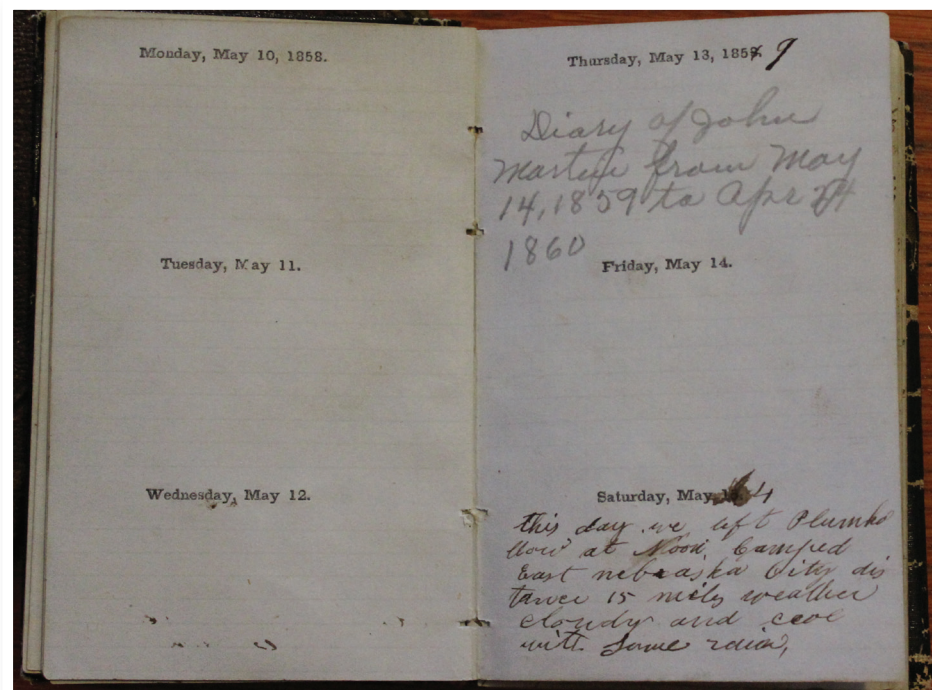 Monday, May 10, 1858.
Tuesday, May 11.
Wednesday, May 12.
Thursday, May 13, 1859
Diary of John
Martin from May
14, 1859 to Apr
1860
Friday, May 14.
Saturday, May 14
this day we left
at Noon, Camped
East nebraska City dis
tance 15 miles weather
cloudy and cool
with Some rain,